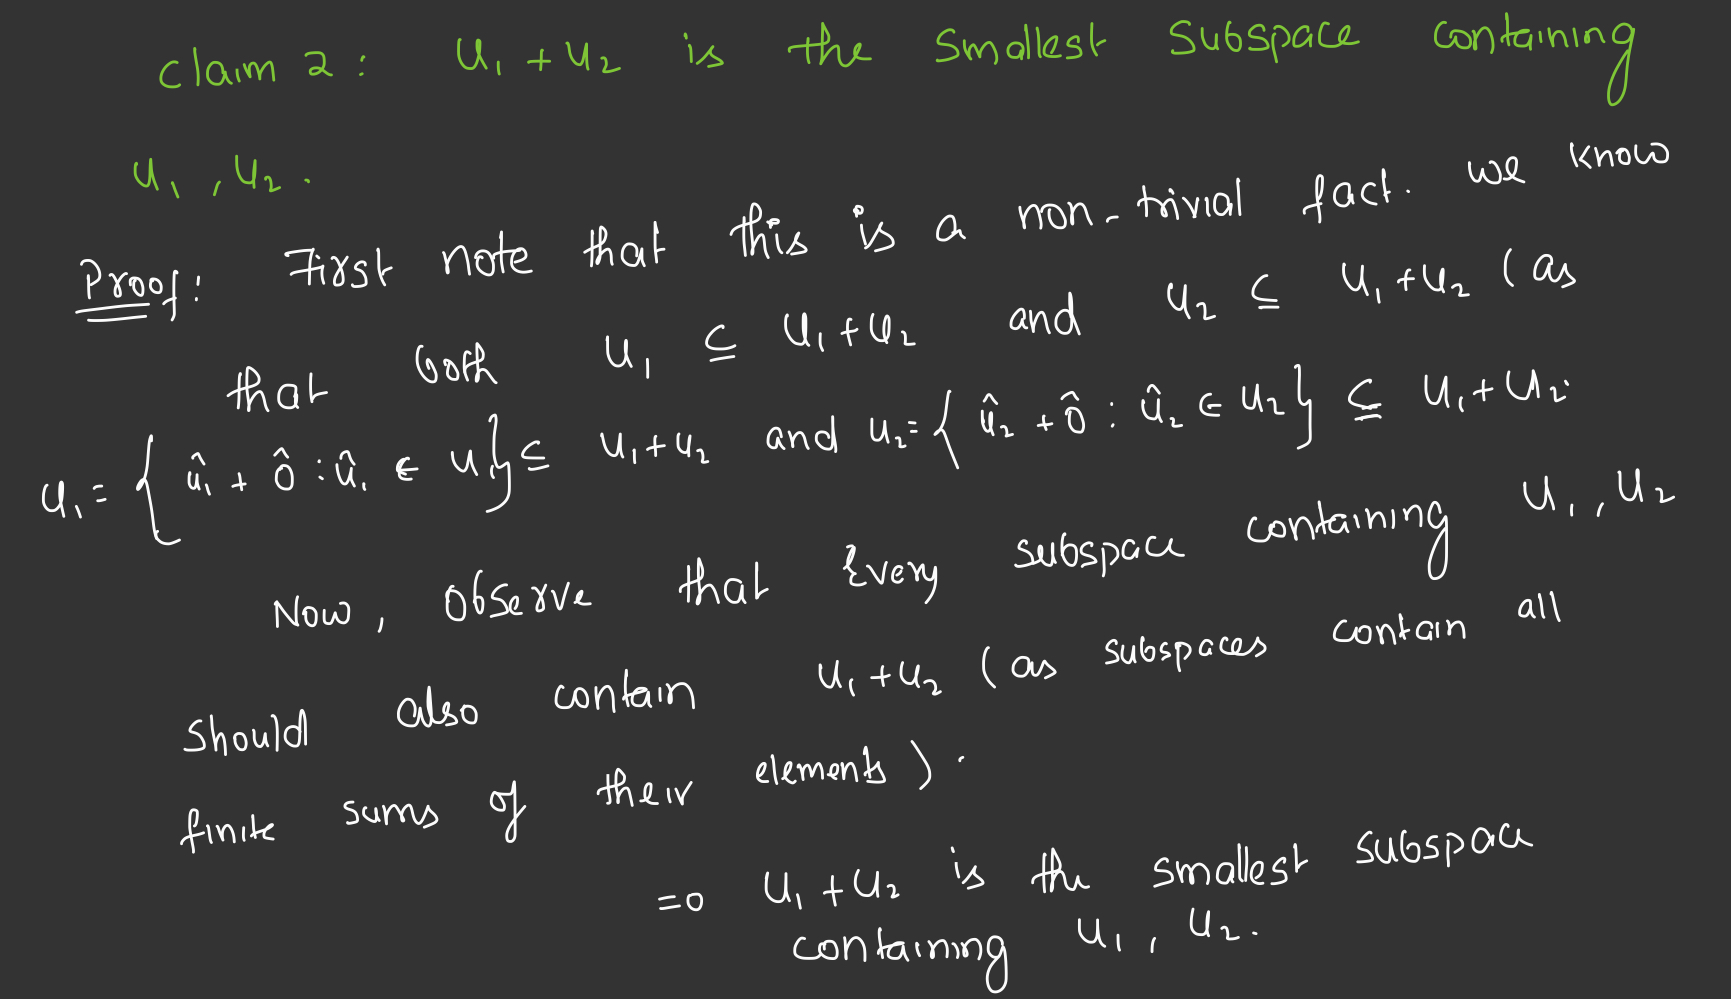 Claim 2 : U₁ + U₂ is the smallest subspace containing
U₁ , U₂ .
Proof: First note that this is a non-trivial fact. we know
that both U₁ ⊆ U₁ + U₂ and U₂ ⊆ U₁ + U₂ (as
U₁ = { û₁ + ô : û₁ ∈ U₁} ⊆ U₁ + U₂ and U₂ = { û₂ + ô : û₂ ∈ U₂} ⊆ U₁ + U₂.
Now , observe that Every subspace containing U₁ , U₂
should also contain U₁ + U₂ (as subspaces contain all
finite sums of their elements ) .
⇒ U₁ + U₂ is the smallest subspace
containing U₁ , U₂ .